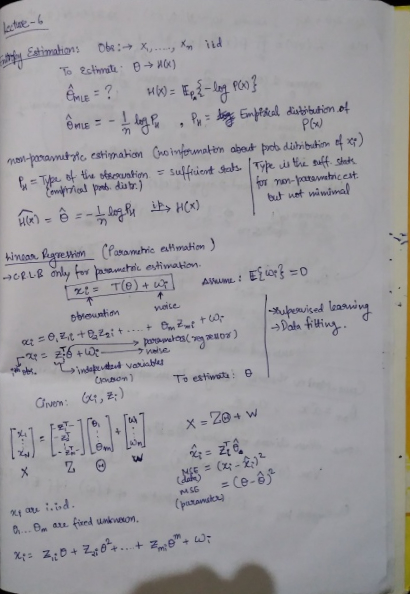 Lecture-6
Entropy Estimation: Obs:→ x₁, ....., xₙ iid
To Estimate: θ → H(x)
θ̂_MLE = ? H(x) = E_Pₓ{-log P(x)}
θ̂_MLE = - 1/n log P_H , P_H = Empirical distribution of P(x)
non-parametric estimation (no information about prob. distribution of xᵢ)
P_H = Type of the observation = sufficient stats
(empirical prob. distr.)
Type is the suff. stats for non-parametric est. but not minimal
Ĥ(x) = θ̂ = - 1/n log P_H i.p→ H(x)
Linear Regression (Parametric estimation)
→ C.R.L.B only for parametric estimation.
xᵢ = T(θ) + wᵢ Assume: E{wᵢ} = 0
observation noise
→ supervised learning
→ Data fitting..
xᵢ = θ₁z₁ᵢ + θ₂z₂ᵢ + .... + θₘzₘᵢ + wᵢ
xᵢ = zᵢᵀθ + wᵢ → parameters (regressor)
→ noise
iᵗʰ obs. → independent variables
(known) To estimate: θ
Given: (xᵢ, zᵢ)
[x₁ ⋮ x_N] = [-z₁ᵀ- -z₂ᵀ- ⋮ -zₙᵀ-] [θ₁ ⋮ θₘ] + [w₁ ⋮ wₙ] X = ZΘ + W
X Z Θ W
x̂ᵢ = zᵢᵀ θ̂
MSE (data) = (xᵢ - x̂ᵢ)²
MSE (parameter) = (θ - θ̂)²
xᵢ are i.i.d.
θ₁...θₘ are fixed unknown.
xᵢ = z₁ᵢθ + z₂ᵢθ² + .... + zₘᵢθᵐ + wᵢ